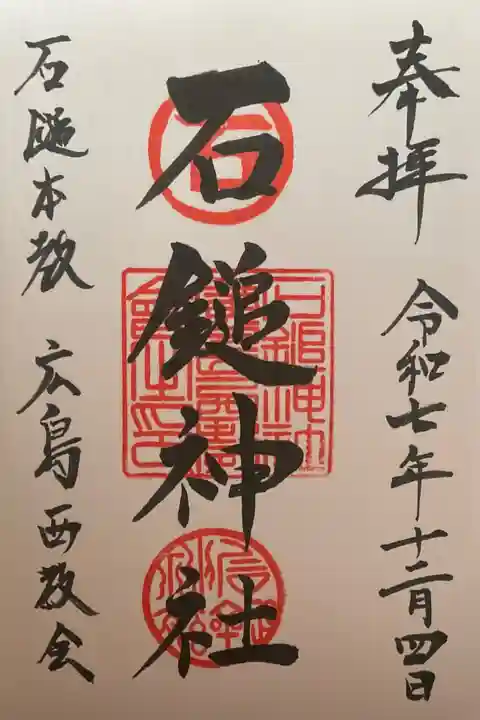 奉拝 令和七年十二月四日
石鎚神社
石
石鎚本教 広島西教会